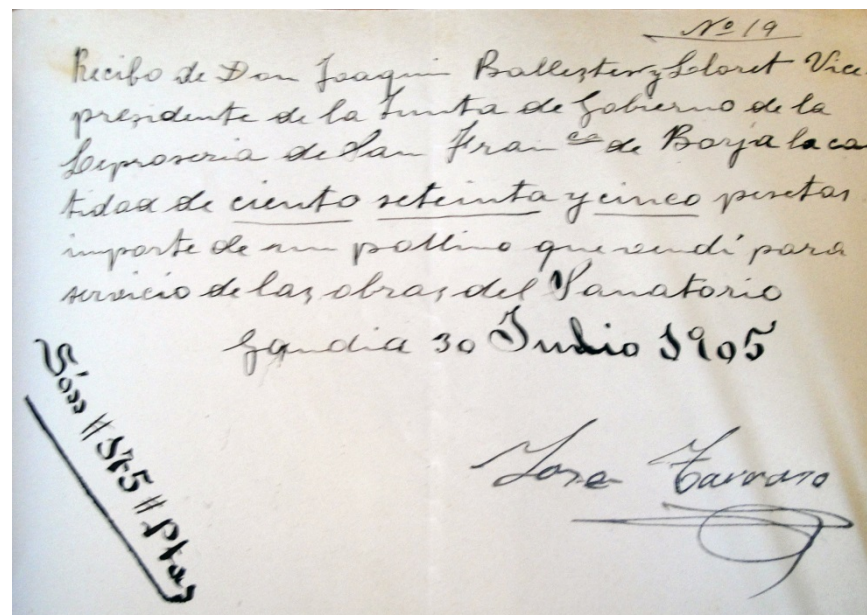 Nº 19
Recibo de Don Joaquin Ballester y Lloret Vice
presidente de la Junta de Gobierno de la
Leproseria de San Fran co de Borja la can
tidad de ciento seteinta y cinco pesetas
importe de un pollino que vendí para
servicio de las obras del Sanatorio
Gandia 30 Junio 1905
Son # 175 # Ptas
Jose Tarraso